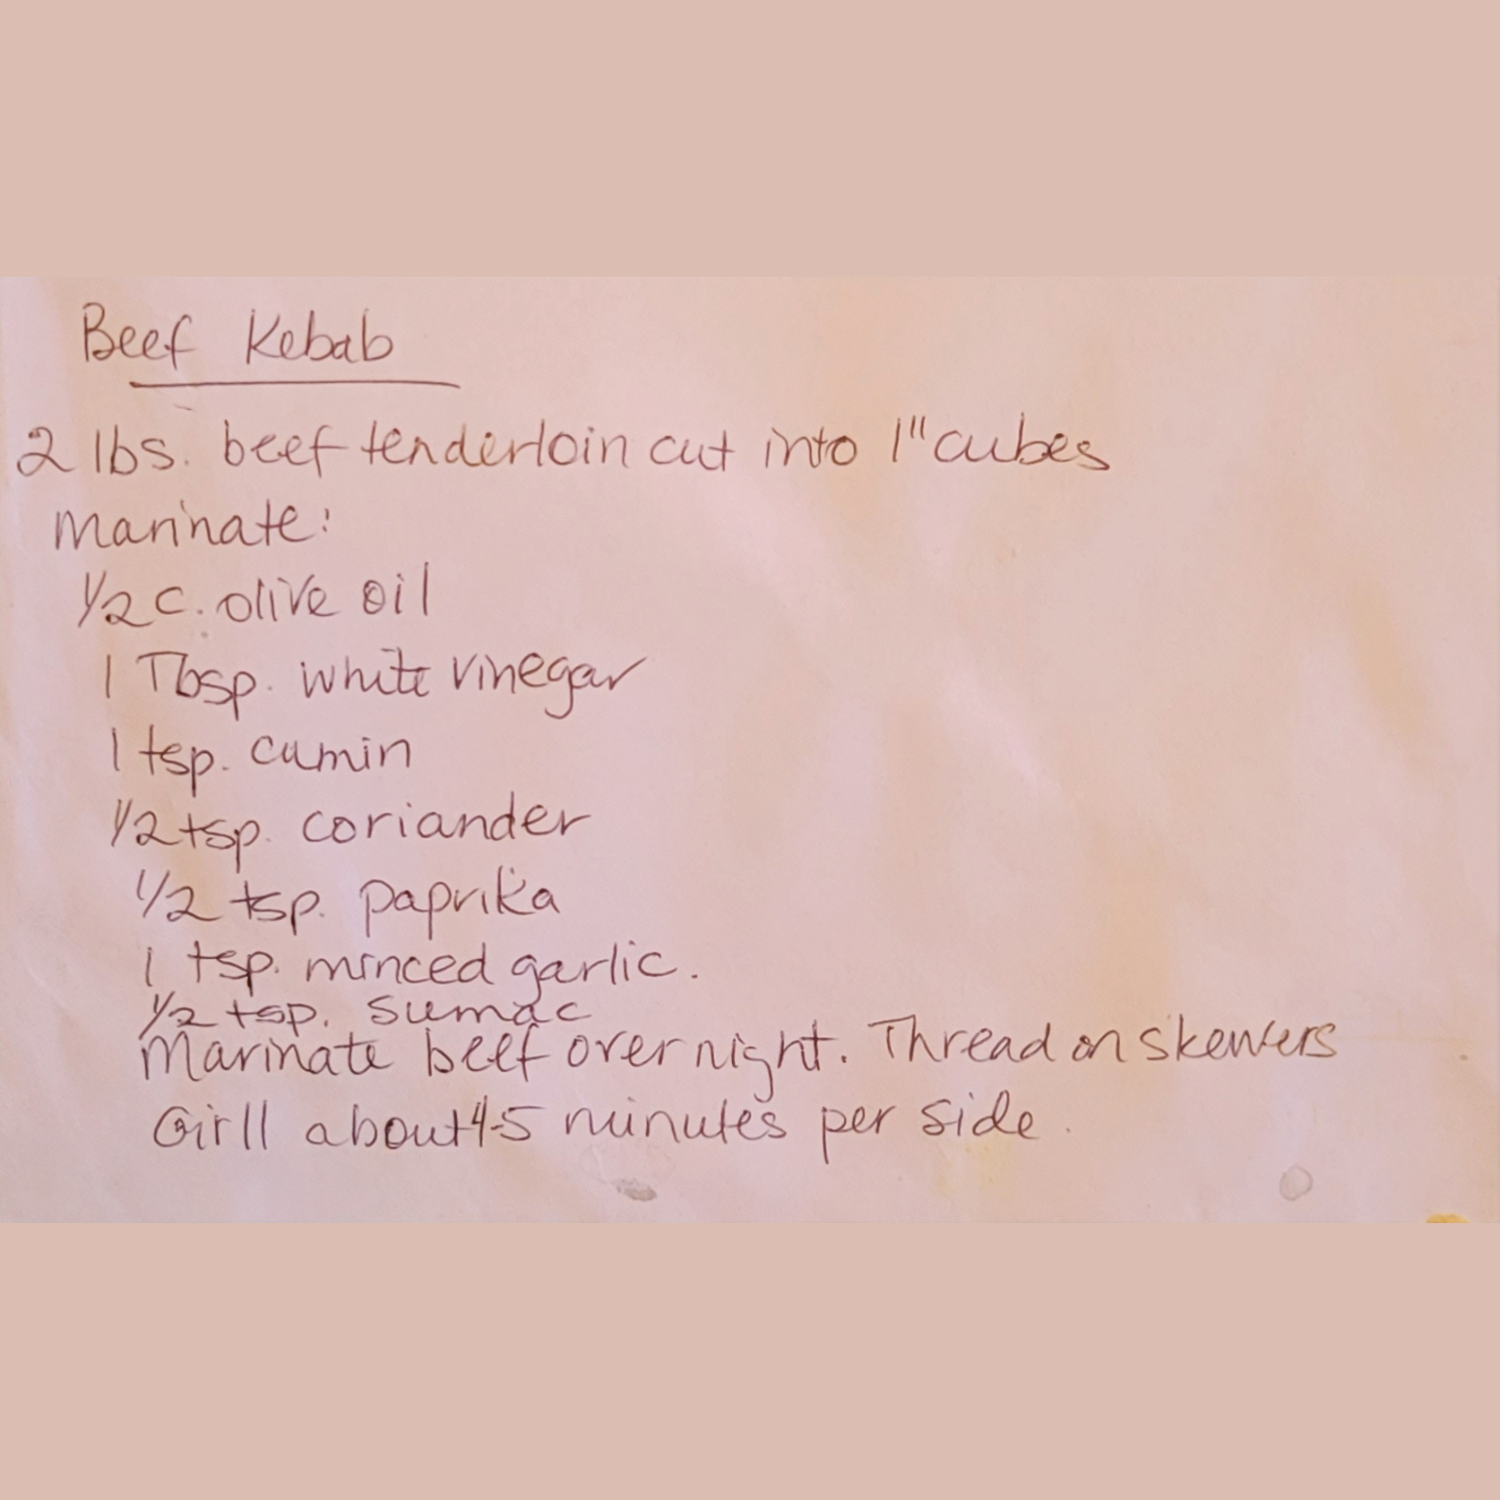 Beef Kebab
2 lbs. beef tenderloin cut into 1" cubes
Marinate:
1/2 c. olive oil
1 Tbsp. white vinegar
1 tsp. cumin
1/2 tsp. coriander
1/2 tsp. paprika
1 tsp. minced garlic.
1/2 tsp. sumac
Marinate beef overnight. Thread on skewers
Girll about 4-5 minutes per side.